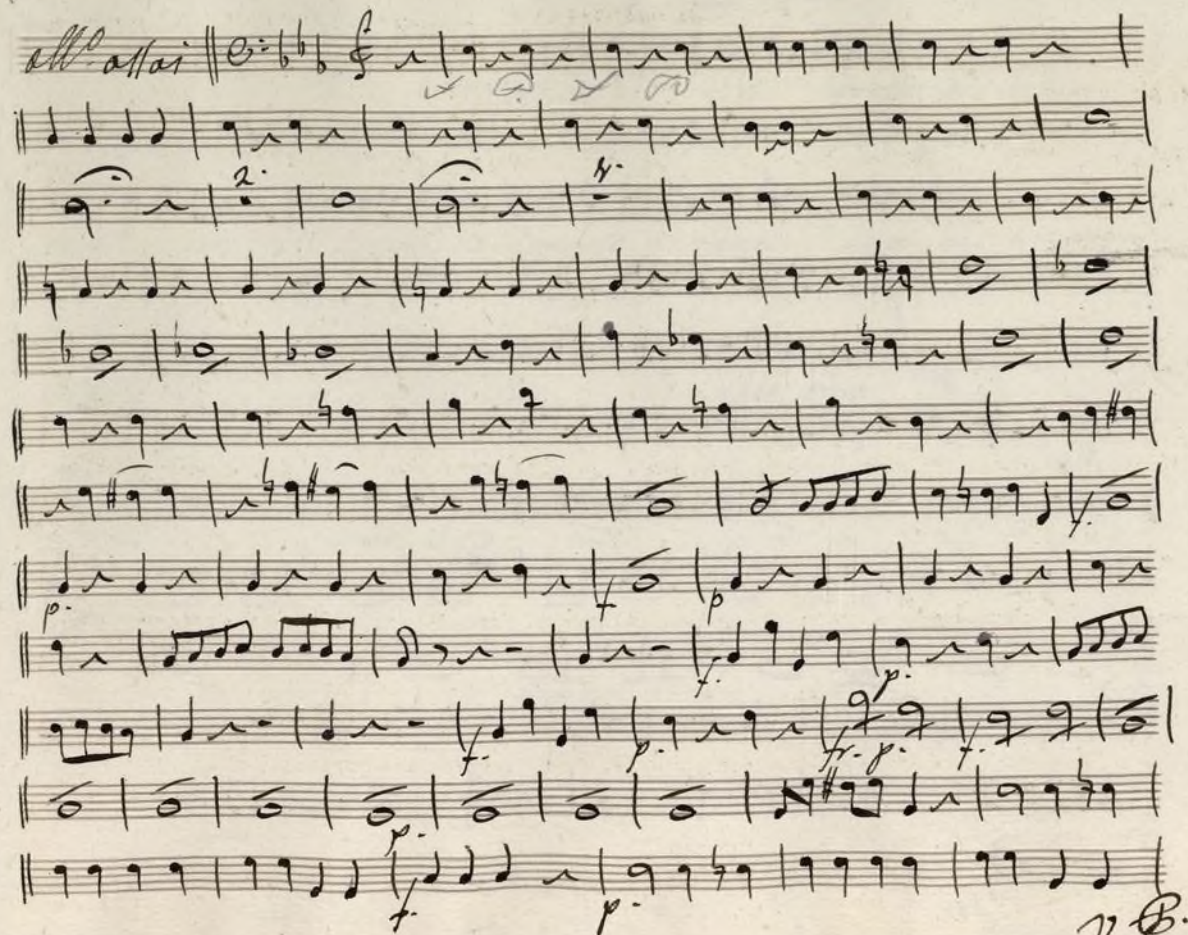 All.º assai
2.
4.
f.
p. f p
f. p.
f. p. fr. p. f.
p.
f. p.
V. S.